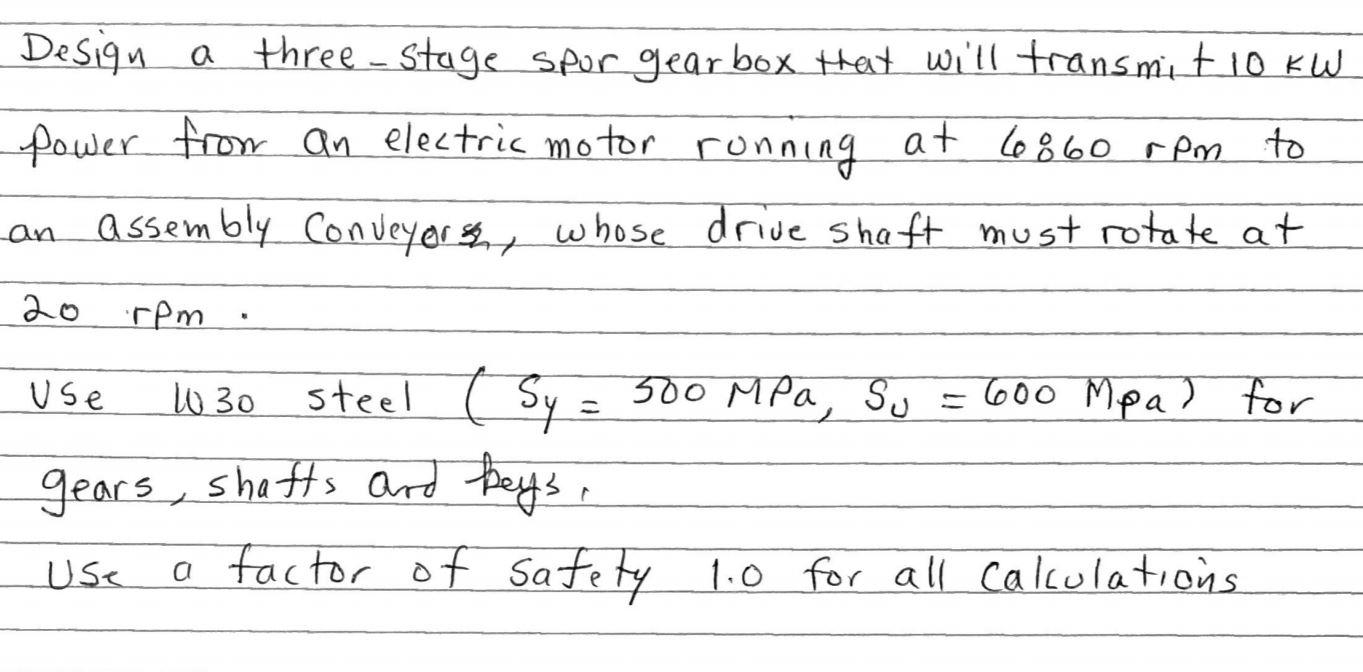 Design a three-stage spur gearbox that will transmit 10 KW
power from an electric motor running at 6860 rpm to
an assembly Conveyor, whose drive shaft must rotate at
20 rpm.
Use 1030 steel (Sy = 500 MPa, Su = 600 Mpa) for
gears, shafts and keys.
Use a factor of safety 1.0 for all calculations